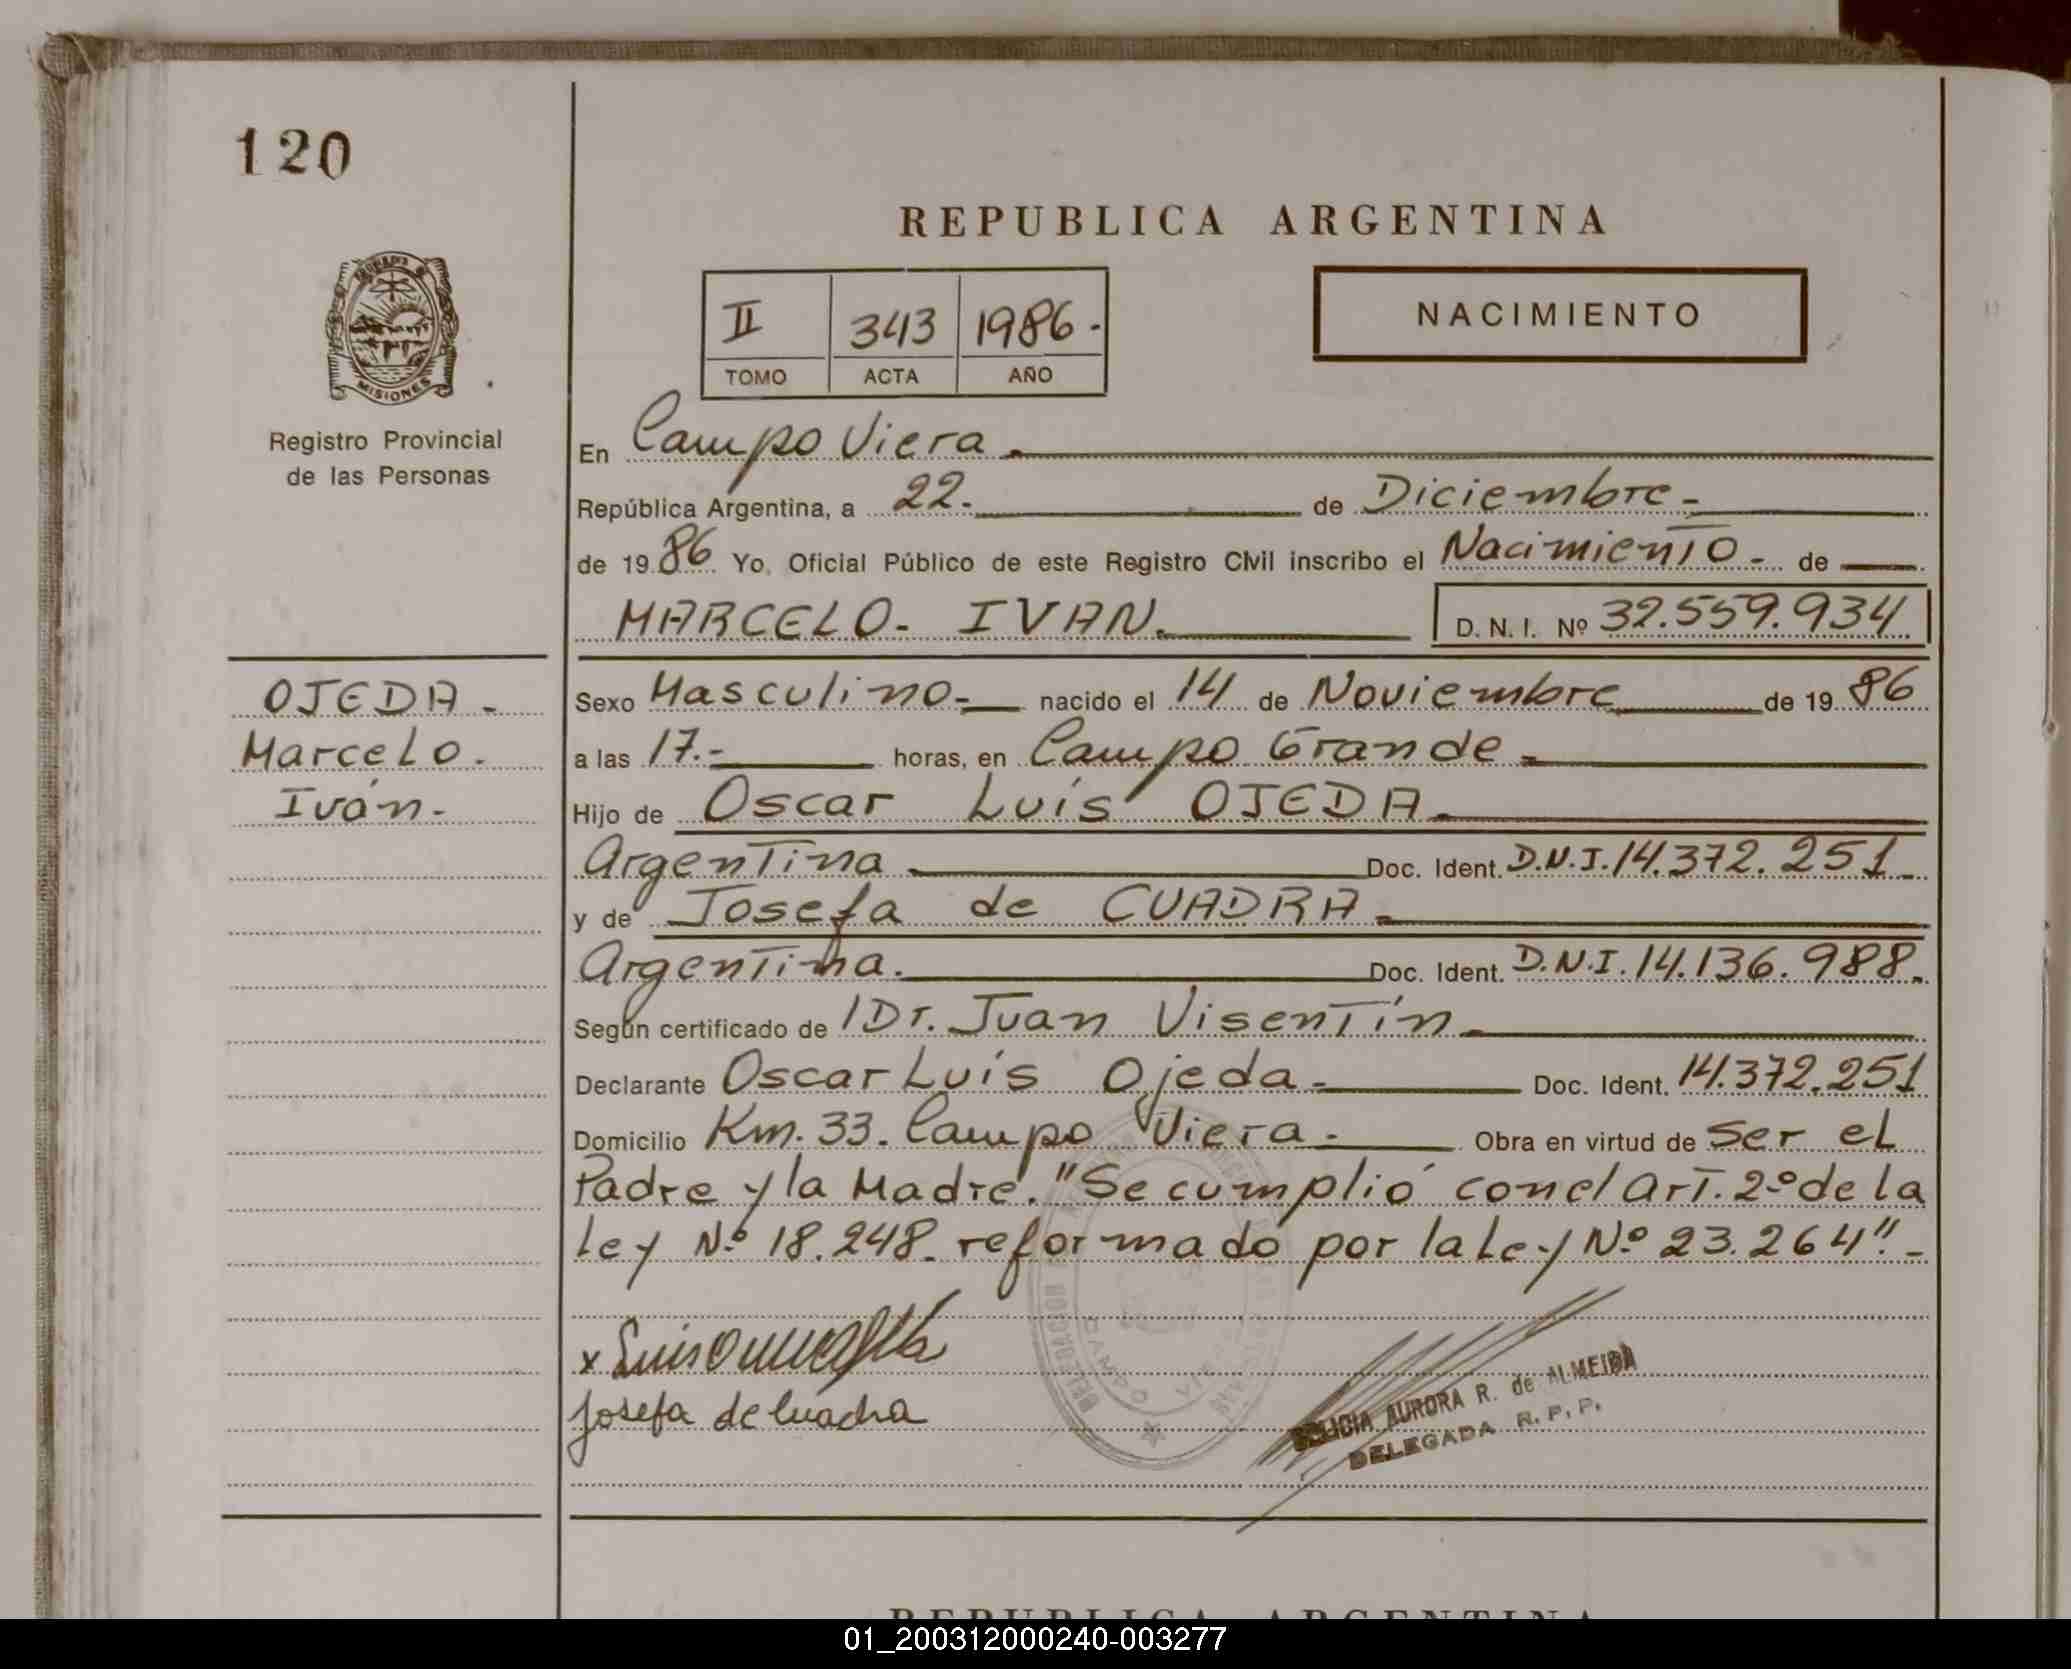 120
REPUBLICA ARGENTINA
II 343 1986.-
TOMO ACTA AÑO
NACIMIENTO
MISIONES
Registro Provincial
de las Personas
En Campo Viera.
República Argentina, a 22.- de Diciembre.-
de 1986 Yo, Oficial Público de este Registro Civil inscribo el Nacimiento.- de
MARCELO.- IVAN. D. N. I. Nº 32.559.934
OJEDA.-
Marcelo.
Iván.-
Sexo Masculino.- nacido el 14 de Noviembre de 19 86
a las 17.- horas, en Campo Grande.-
Hijo de Oscar Luís OJEDA.-
Argentina Doc. Ident. D.N.I. 14.372.251.-
y de Josefa de CUADRA.-
Argentina. Doc. Ident. D.N.I. 14.136.988.-
Según certificado de Dr. Juan Visentín.-
Declarante Oscar Luís Ojeda.- Doc. Ident. 14.372.251
Domicilio Km. 33. Campo Viera.- Obra en virtud de Ser el
Padre y la Madre. "Se cumplió con el Art. 2º de la
Ley Nº 18.248. reformado por la Ley Nº 23.264".-
x
Josefa de Cuadra
DELEGACION
CAMPO VIERA
AURORA R. de ALMEIDA
DELEGADA R. P. P.
REPUBLICA ARGENTINA
01_200312000240-003277